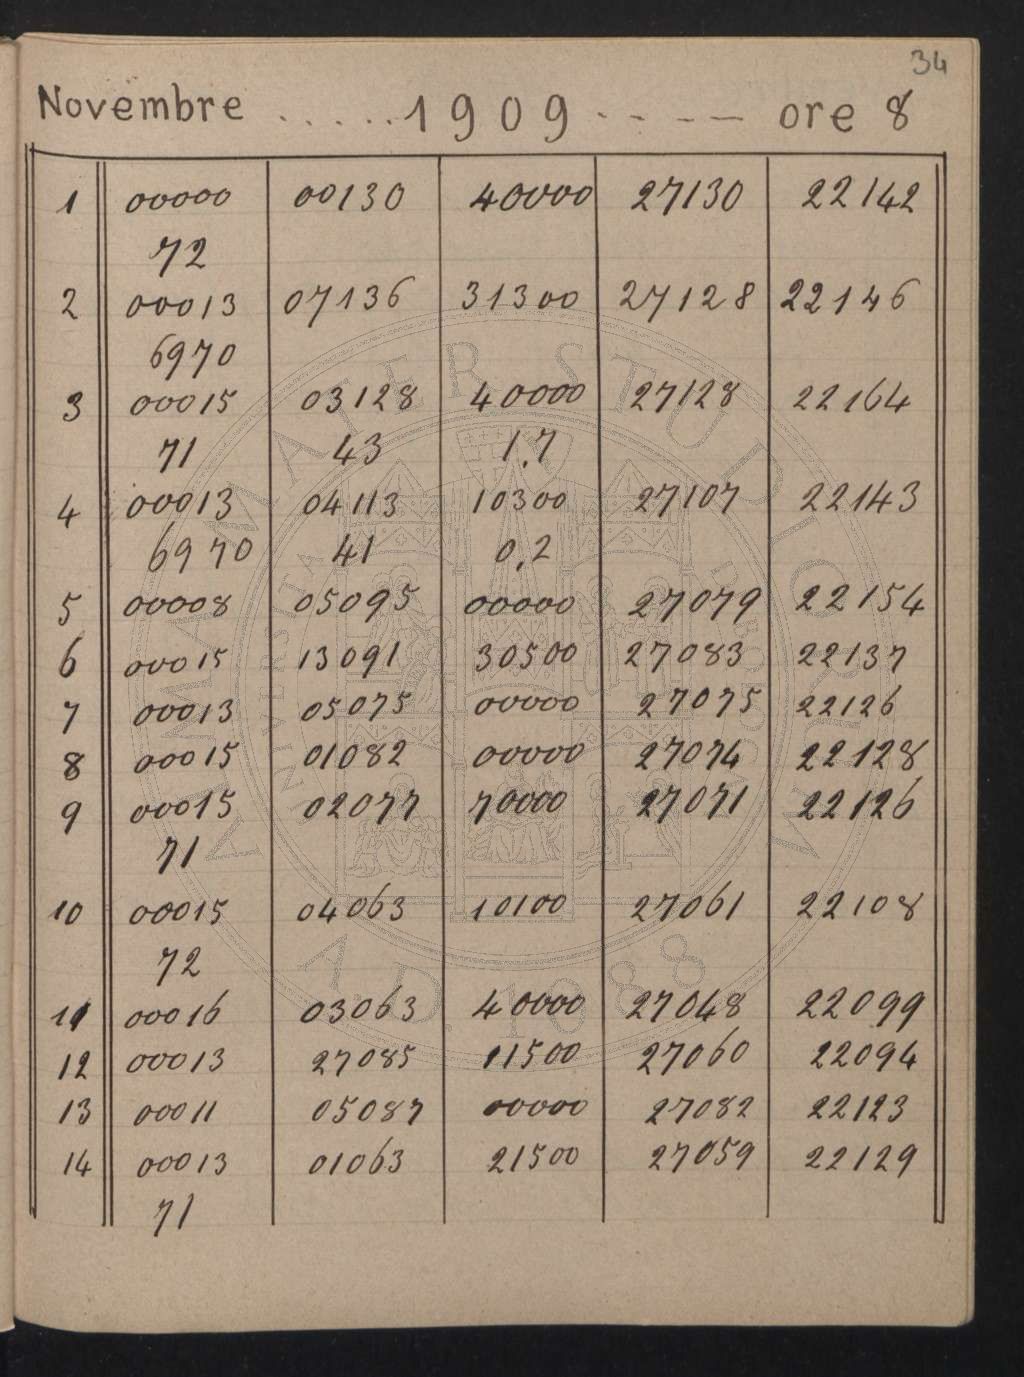 34
Novembre ..... 1909 ----- ore 8
1 00000 00130 40000 27130 22142
72
2 00013 07136 31300 27128 22146
6970
3 00015 03128 40000 27128 22164
71 43 1.7
4 00013 04113 10300 27107 22143
6970 41 0.2
5 00008 05095 00000 27079 22154
6 00015 13091 30500 27083 22137
7 00013 05075 00000 27075 22126
8 00015 01082 00000 27074 22128
9 00015 02077 70000 27071 22126
71
10 00015 04063 10100 27061 22108
72
11 00016 03063 40000 27048 22099
12 00013 27085 11500 27060 22094
13 00011 05087 00000 27082 22123
14 00013 01063 21500 27059 22129
71
ALMA MATER STUDIORUM
A.D. 1088